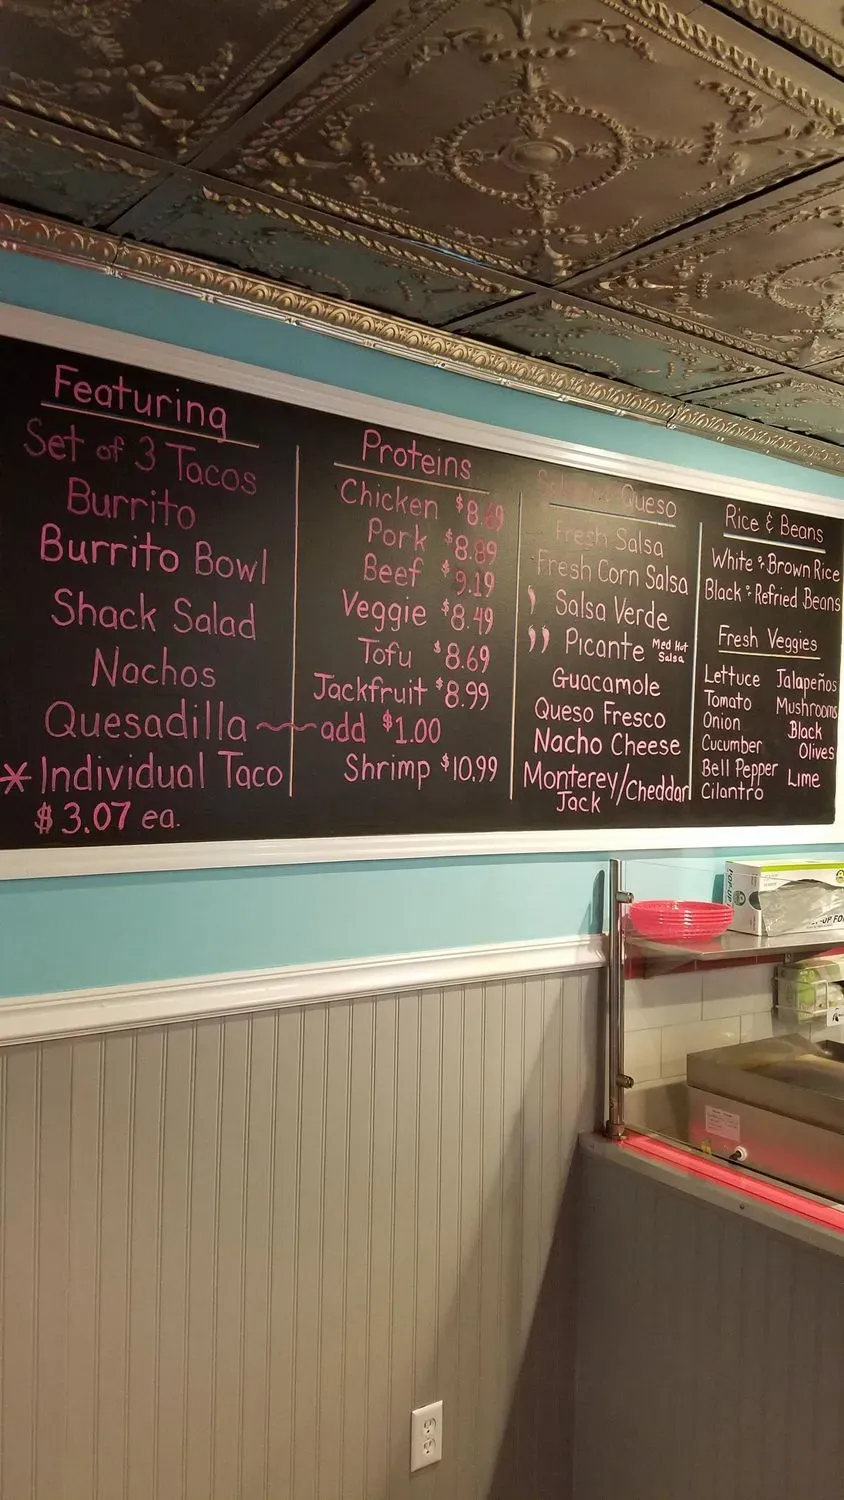 Featuring
Set of 3 Tacos
Burrito
Burrito Bowl
Shack Salad
Nachos
Quesadilla ~ add $1.00
* Individual Taco
$3.07 ea.
Proteins
Chicken $8.69
Pork $8.89
Beef $9.19
Veggie $8.49
Tofu $8.69
Jackfruit $8.99
Shrimp $10.99
Queso
Fresh Salsa
Fresh Corn Salsa
Salsa Verde
Picante Med Hot Salsa
Guacamole
Queso Fresco
Nacho Cheese
Monterey/Cheddar
Jack
Rice & Beans
White & Brown Rice
Black & Refried Beans
Fresh Veggies
Lettuce
Tomato
Onion
Cucumber
Bell Pepper
Cilantro
Jalapeños
Mushrooms
Black
Olives
Lime
POP-UP